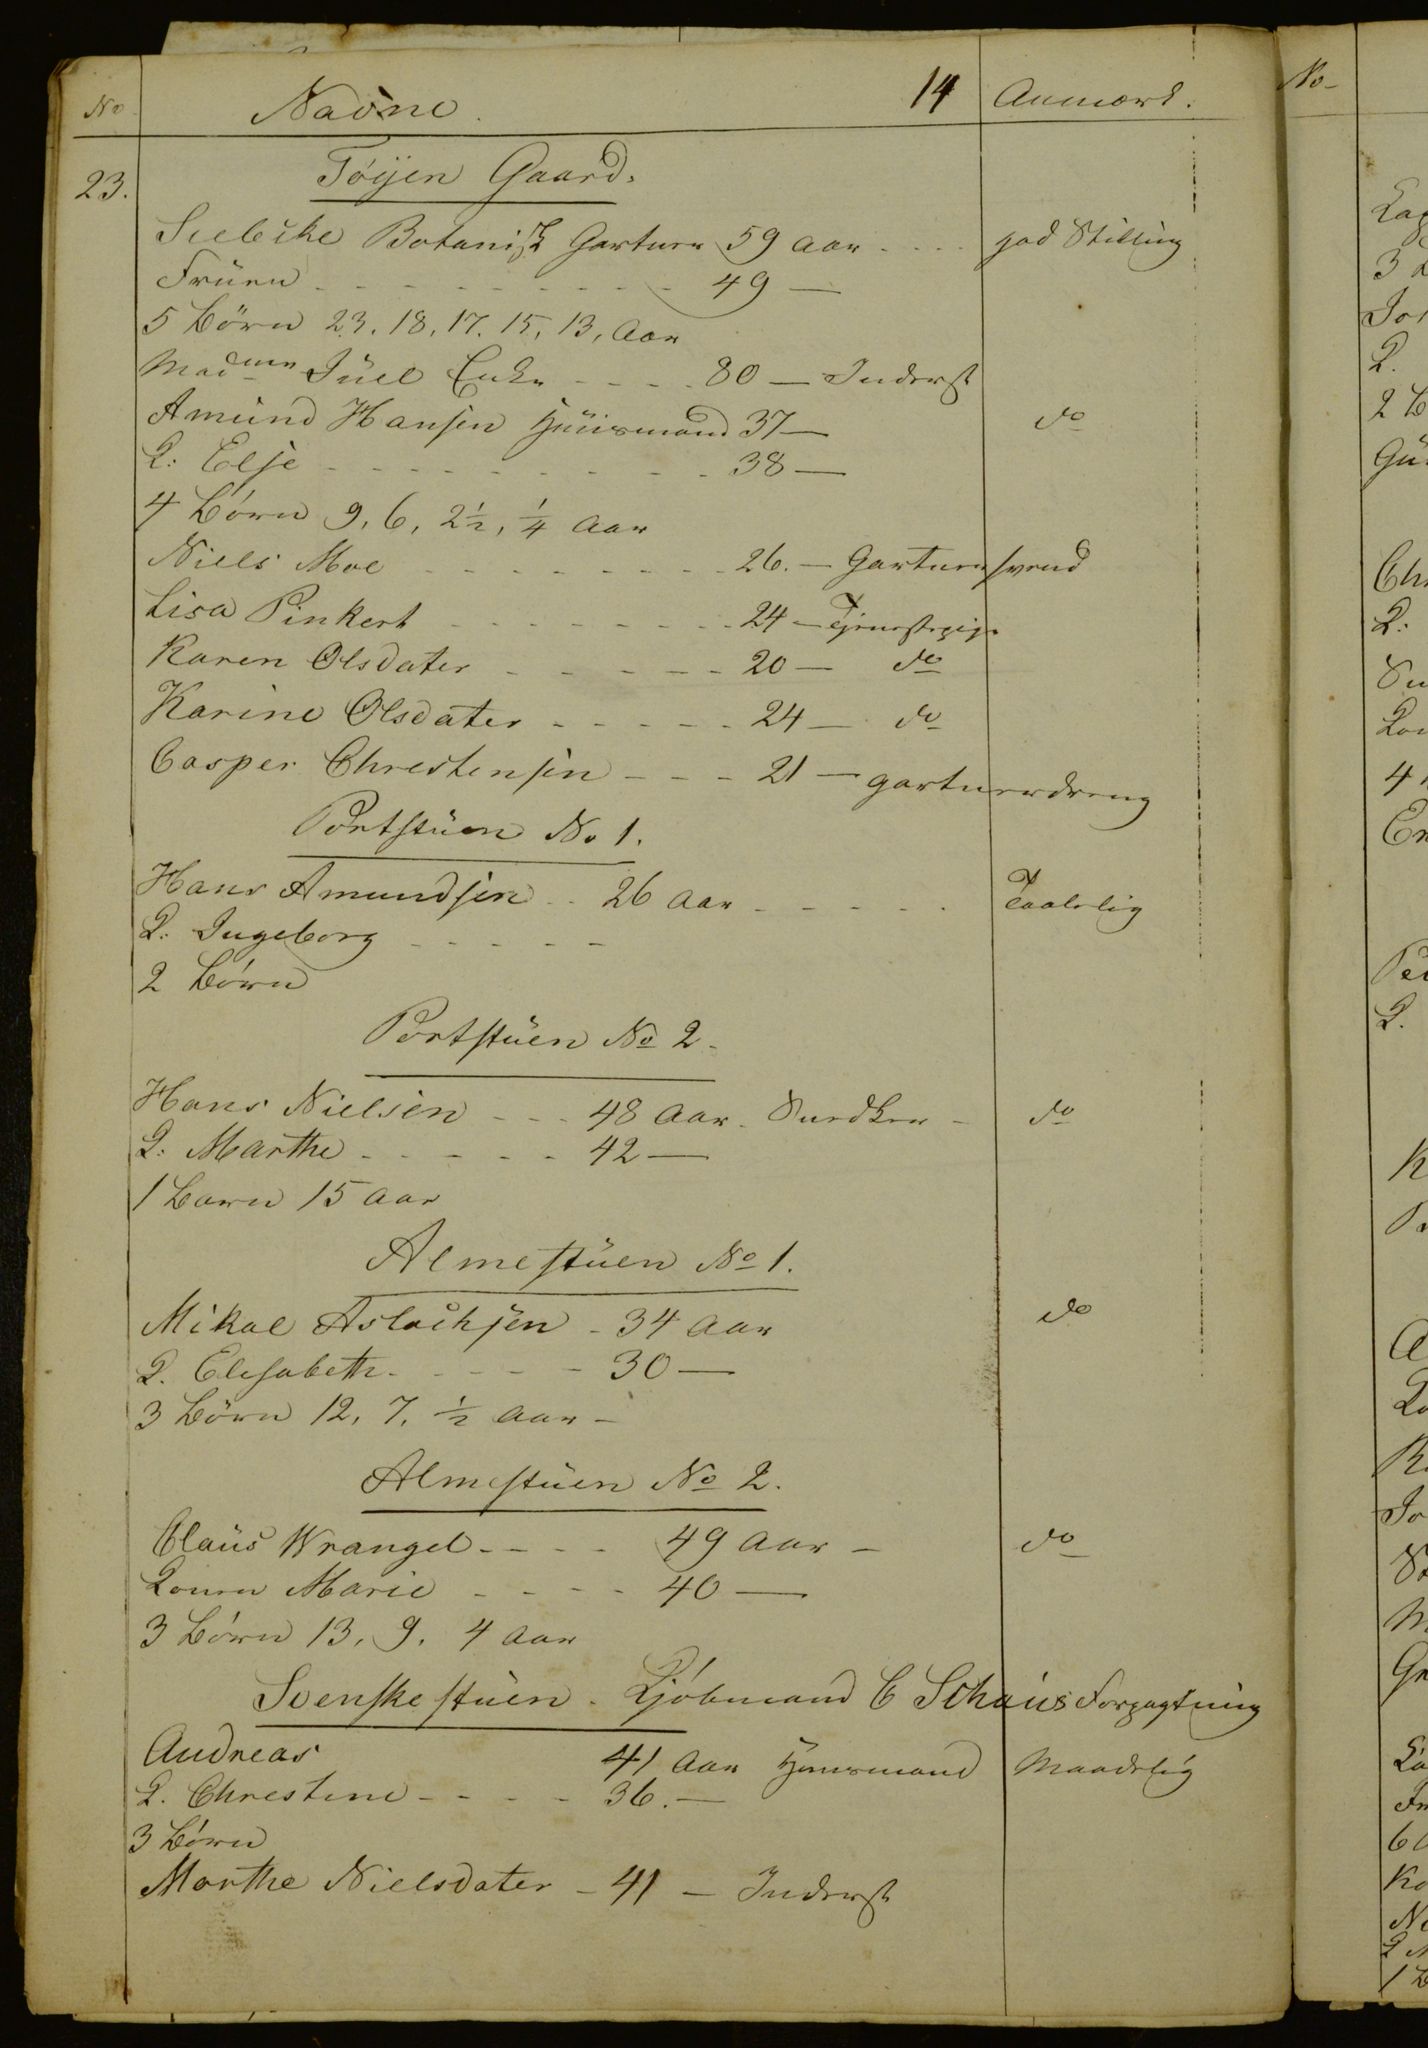 No Navne. 14 Anmærk.
23. Töyen Gaard.
Siebike Botanisk Gartner 59 Aar - - - - god Stilling
Früen - - - - - - - - - 49 —
5 Börn 23, 18, 17, 15, 13, Aar
Madmm Jüel Enke - - - - 80 — Inderst
Amünd Hansen Hüüsmand 37 — do
K: Elje - - - - - - - - - 38 —
4 Börn 9, 6, 2½, ¼ Aar
Niels Moe - - - - - - - - 26. — Gartnersvend
Lisa Pinkert - - - - - - - 24 — Tjenestepige
Karen Olsdater - - - - - - 20 — do
Karine Olsdater - - - - - 24 — do
Casper Christensen - - - 21 — gartnerdreng
Portstüen No 1.
Hans Amundsen - - 26 Aar - - - - - Taalelig
K: Ingeborg - - - - -
2 Börn
Portstüen No 2.
Hans Nielsen - - - 48 Aar. Snedker - do
K: Marthe - - - - - 42 —
1 Barn 15 Aar
Almestüen No 1.
Mikal Aslachsen - 34 Aar do
K. Elisabeth - - - - - 30 —
3 Börn 12, 7, ½ Aar -
Almestüen No 2.
Claüs Wrangel - - - - 49 Aar - do
Konen Marie - - - - 40 —
3 Börn 13, 9, 4 Aar
Svenskestüen - Kjöbmand C Schaüs Forpagtning
Andreas 41 Aar Huusmand Maadelig
K. Christine - - - - - 36. —
3 Börn
Marthe Nielsdater - 41 — Inderst
No
3
2
4
6
1